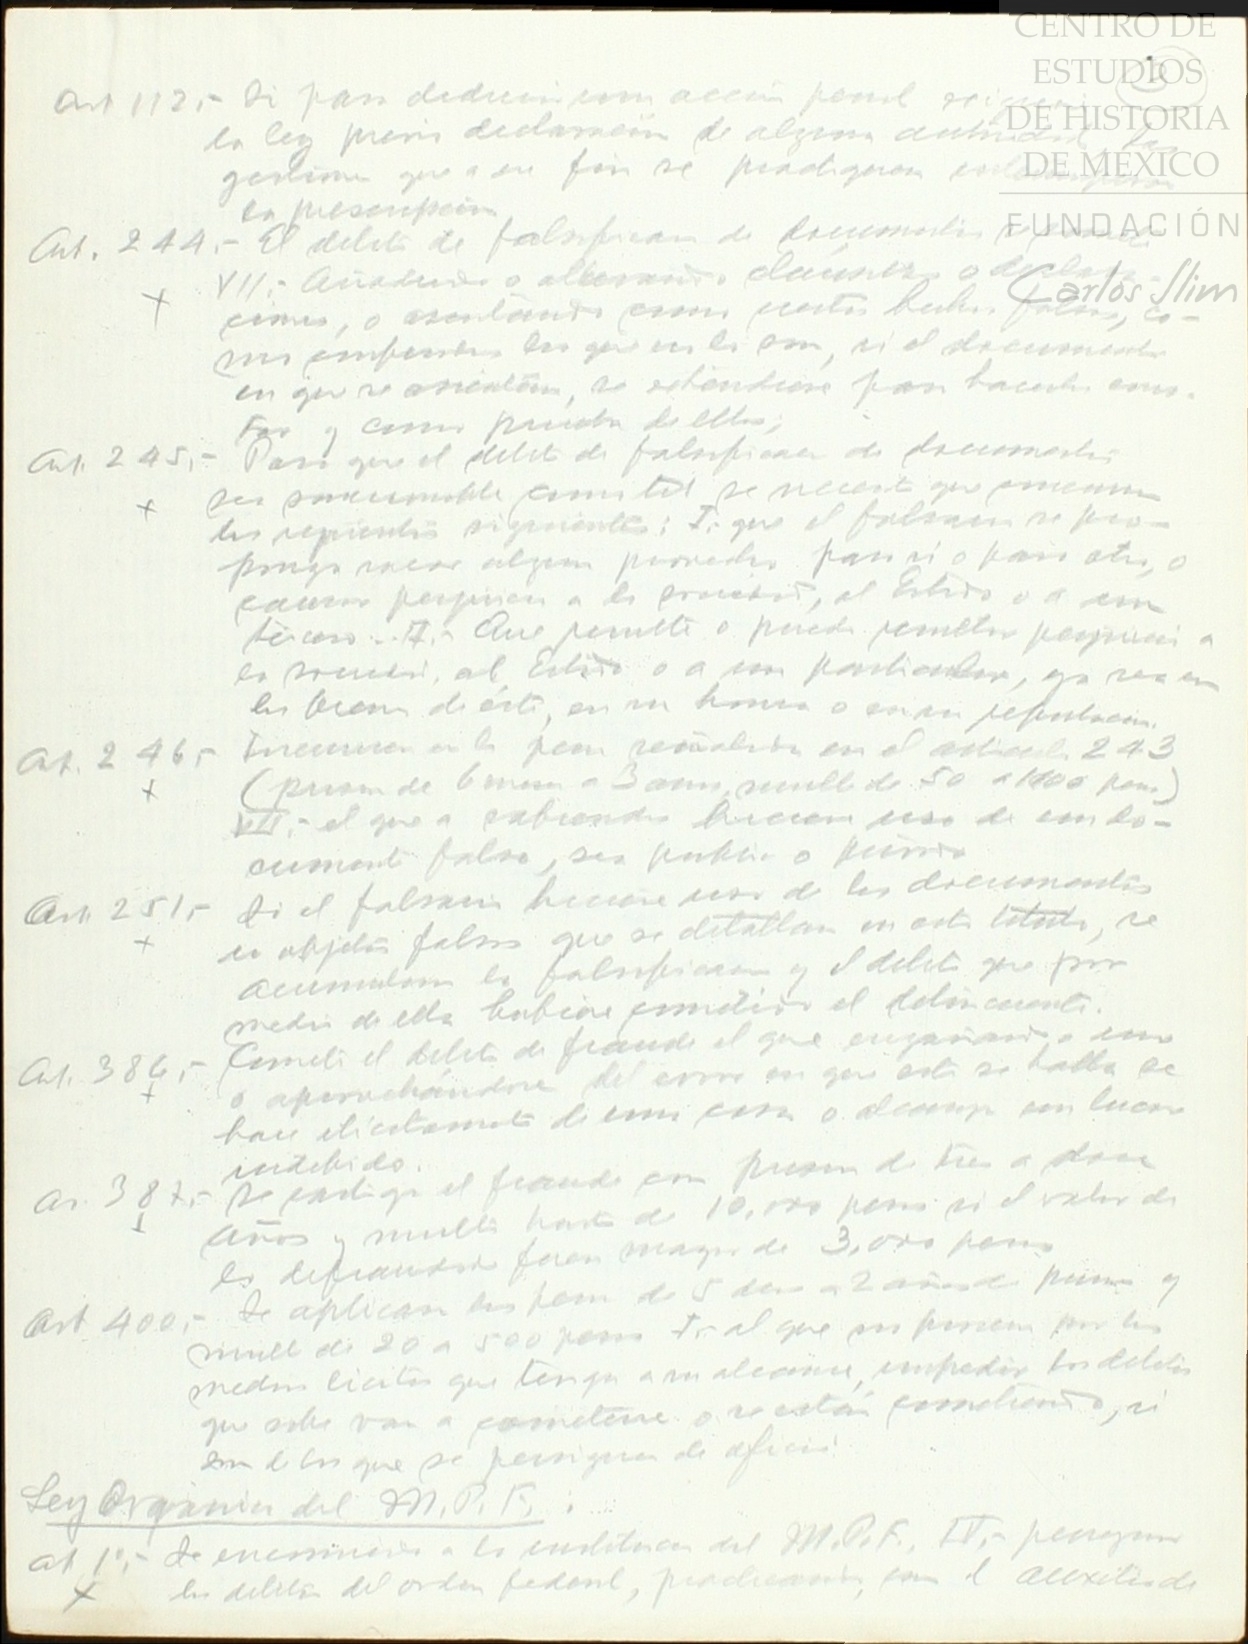 CENTRO DE
ESTUDIOS
DE HISTORIA
DE MÉXICO
FUNDACIÓN
Carlos Slim
Art 112.- Si para deducir una acción penal
la ley previa declaración de alguna autoridad, las
gestiones que a ese fin se practiquen
la prescripción
Art. 244.- El delito de falsificación de documentos se comete
VII.- Añadiendo o alterando cláusulas o declara-
ciones, o asentando como ciertos hechos falsos, co-
mo confesados los que no lo son, si el documento
en que se asientan, se extendiere para hacerlos cons-
tar y como prueba de ellos;
Art. 245.- Para que el delito de falsificación de documentos
sea sancionable como tal se necesita que concurran
los requisitos siguientes: I.- que el falsario se pro-
ponga sacar algún provecho para sí o para otro, o
causar perjuicio a la sociedad, al Estado o a un
tercero. II.- Que resulte o pueda resultar perjuicio a
la sociedad, al Estado o a un particular, ya sea en
los bienes de éste, en su honra o en su reputación.
Art. 246.- Incurren en la pena señalada en el artículo 243
(prisión de 6 meses a 3 años, multa de 50 a 1000 pesos)
VII.- el que a sabiendas hiciere uso de un do-
cumento falso, sea público o privado
Art. 251.- Si el falsario hiciere uso de los documentos
u objetos falsos que se detallan en este título, se
acumulan la falsificación y el delito que por
medio de ella hubiere cometido el delincuente.
Art. 386.- Comete el delito de fraude el que engañando a uno
o aprovechándose del error en que éste se halla se
hace ilícitamente de una cosa o alcanza un lucro
indebido.
Ar. 387.- Se castiga el fraude con prisión de tres a doce
años y multa hasta de 10,000 pesos si el valor de
lo defraudado fuera mayor de 3,000 pesos
Art 400.- Se aplicarán las penas de 5 días a 2 años de prisión y
multa de 20 a 500 pesos I.- al que no procure por los
medios lícitos que tenga a su alcance, impedir los delitos
que sabe van a cometerse o se están cometiendo, si
son de los que se persiguen de oficio.
Ley Orgánica del M.P.F.:
art 1º.- Se encomienda a la institución del M.P.F., IV.- perseguir
los delitos del orden federal, practicando, con el auxilio de